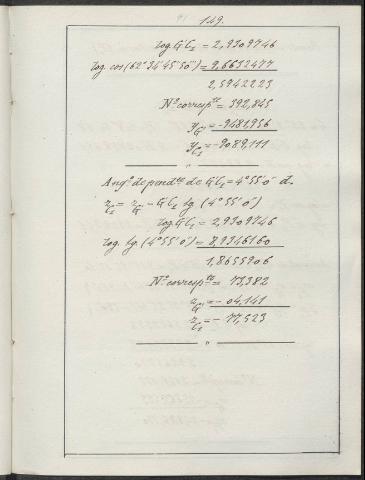 149.
log. G'C₂ = 2,9309746
log. cos (62° 34' 45",50'") = 9,6632477
2,5942223
Nº corresp.te = 392,845
y G' = -9481,956
y C₂ = -9089,111
"
Angº depend.te de G'C₂ = 4° 55' 0" d.
z C₂ = z G' - G'C₂ tg (4° 55' 0")
log. G'C₂ = 2,9309746
log. tg. (4° 55' 0") = 8,9346160
1,8655906
Nº corresp.te = 73,382
z G' = - 04,141
z C₂ = - 77,523
"